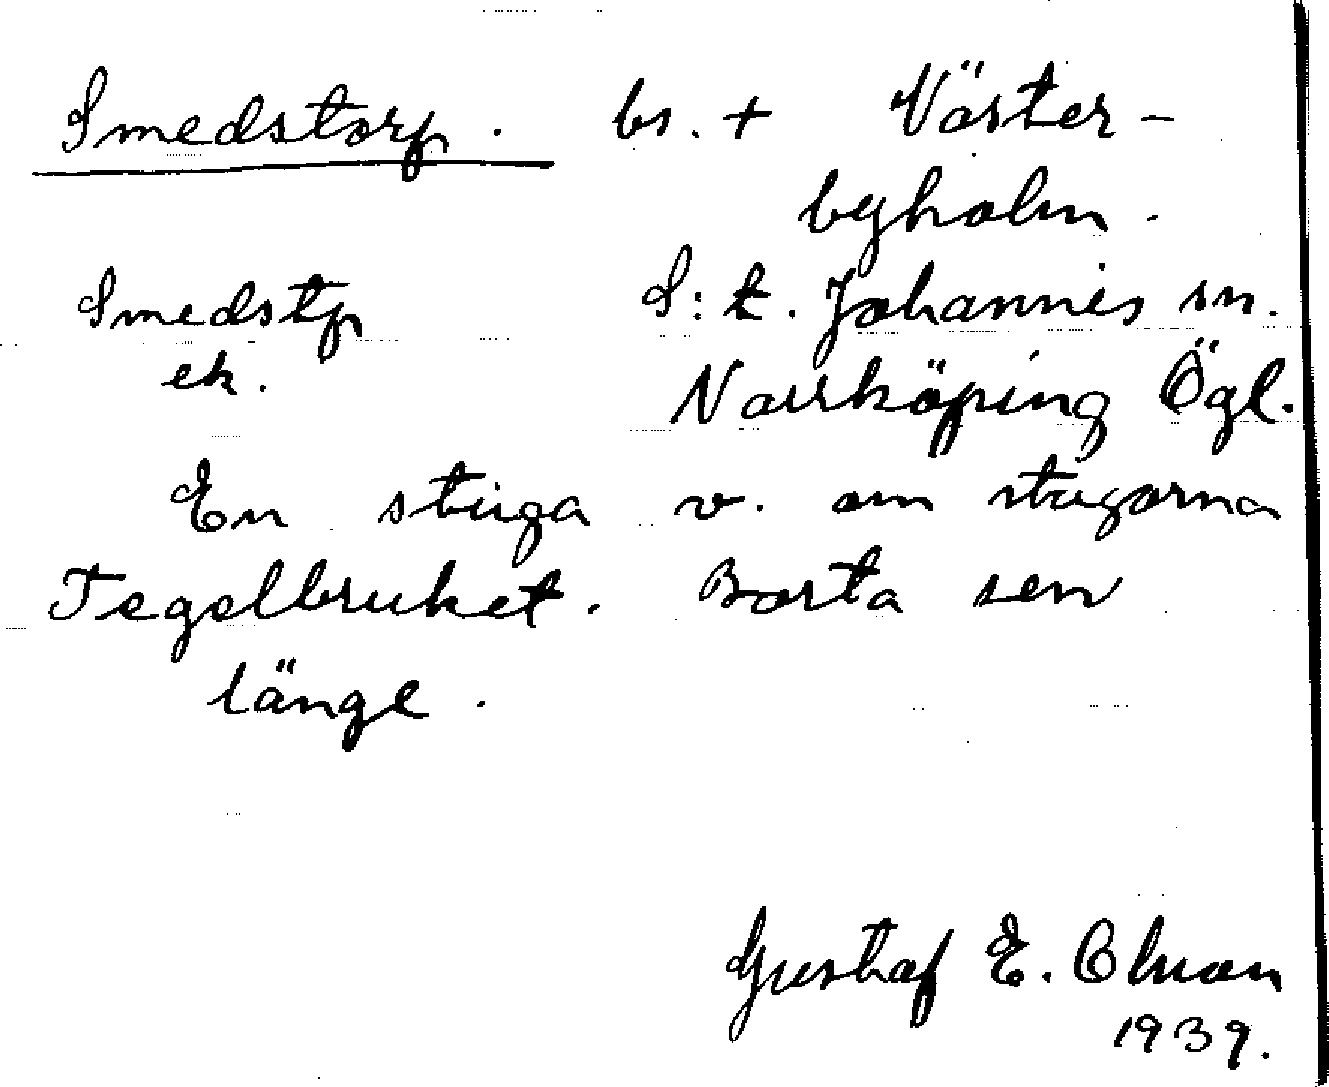 Smedstorp. bs. + Väster-
byholm.
Smedstp S:t. Johannis sn.
ek. Norrköping Ögl.
En stuga v. om stugorna
Tegelbruket. Borta sen
länge.
Gustaf E. Olsson
1939.